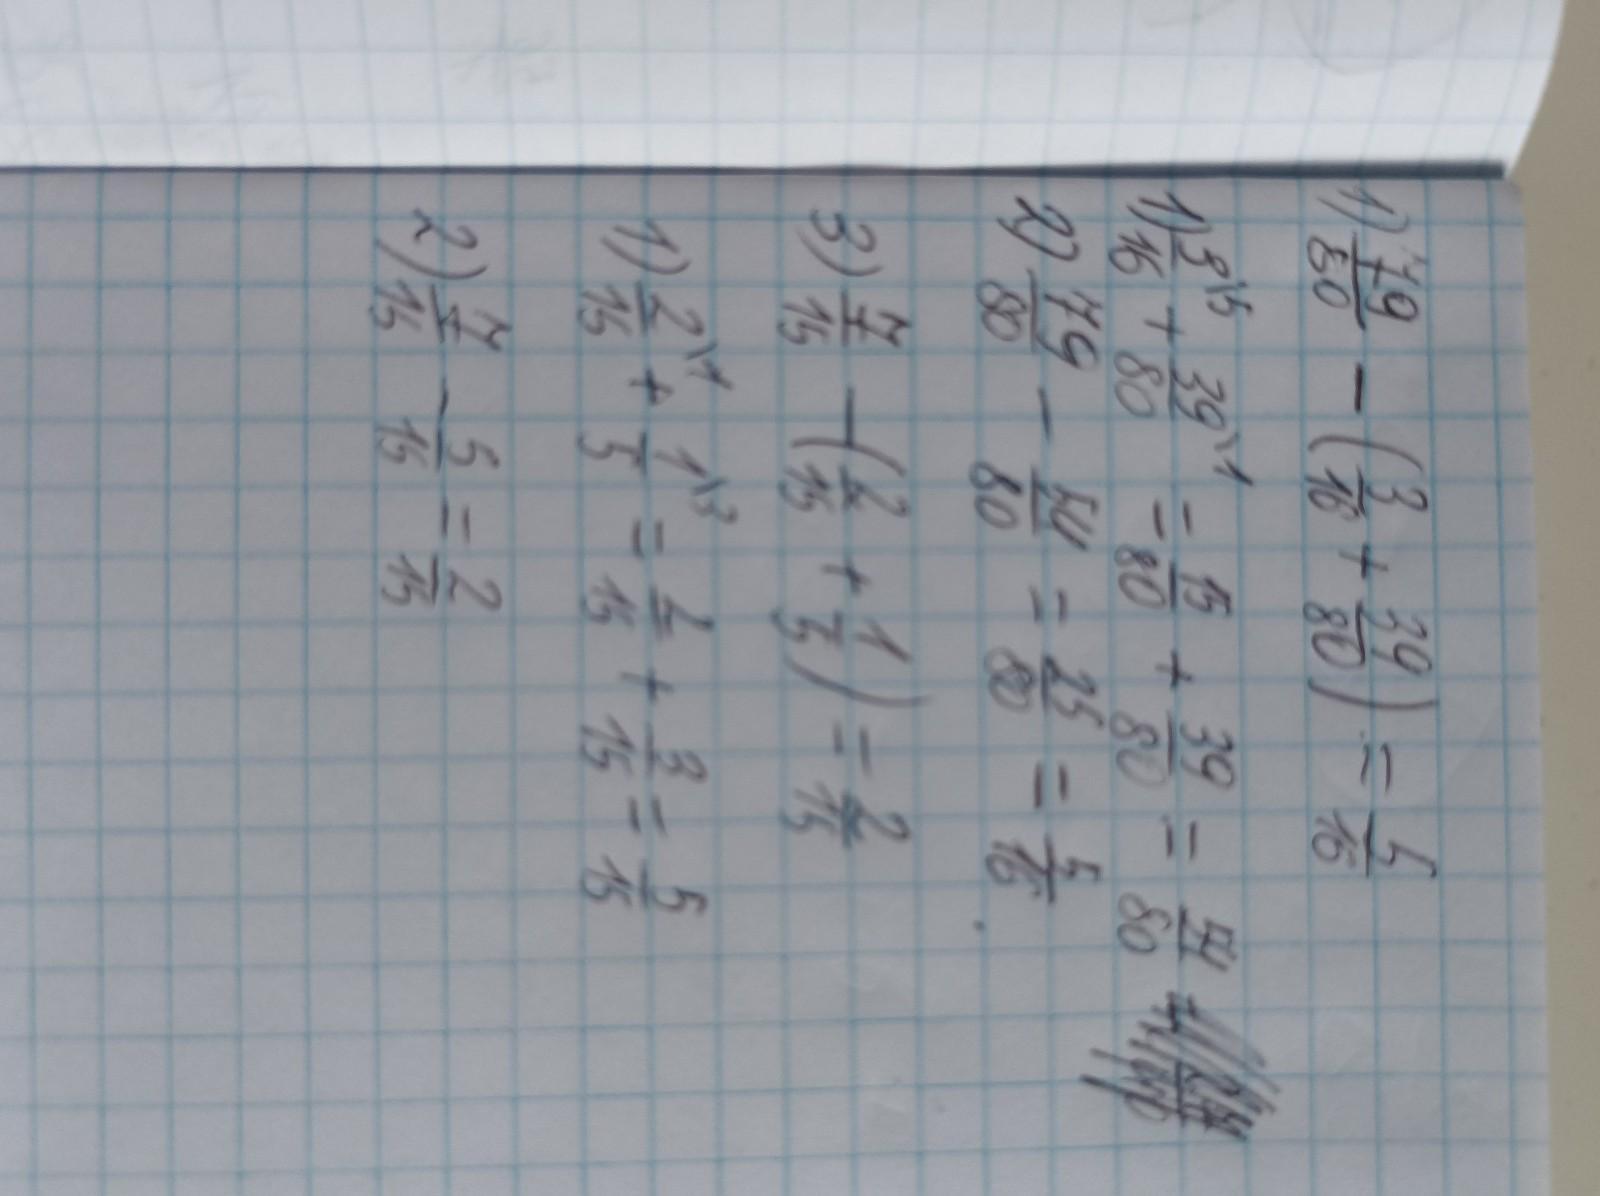 1) 79/80 - (3/16 + 39/80) = 5/16
1) 3\5/16 + 39\1/80 = 15/80 + 39/80 = 54/80
2) 79/80 - 54/80 = 25/80 = 5/16.
3) 7/15 - (2/15 + 1/5) = 2/15
1) 2\1/15 + 1\3/5 = 2/15 + 3/15 = 5/15
2) 7/15 - 5/15 = 2/15